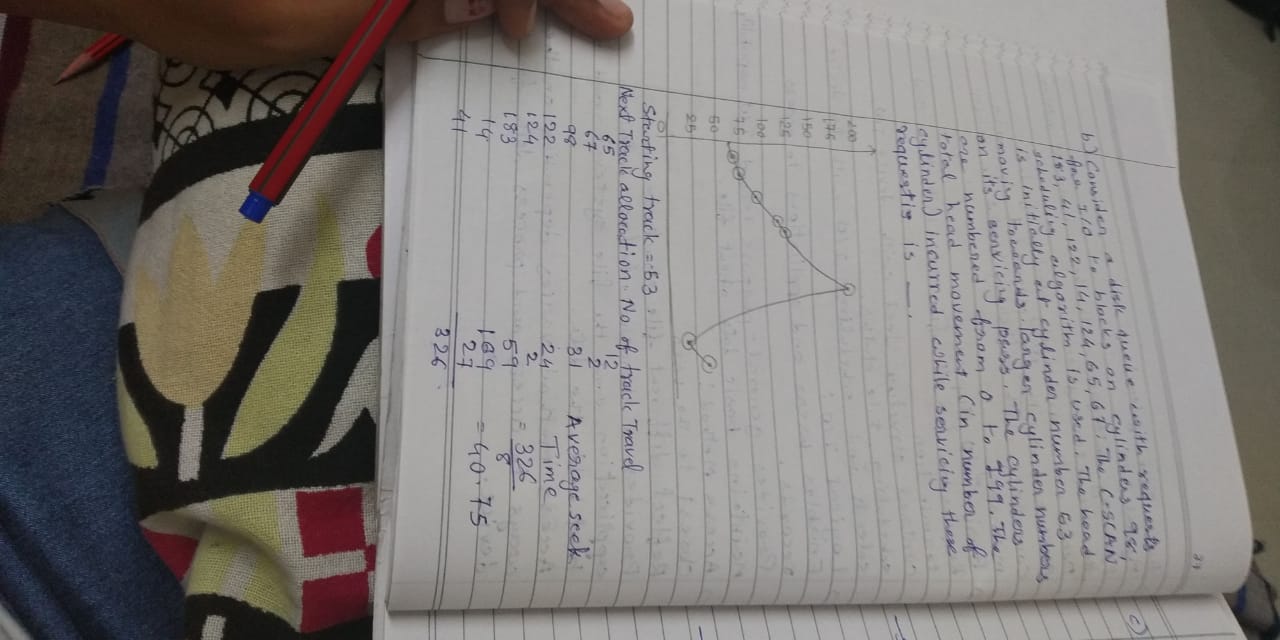 b.) Consider a disk queue with requests
for I/O to blocks on cylinders 98,
183, 41, 122, 14, 124, 65, 67. The C-SCAN
scheduling algorithm is used. The head
is initially at cylinder number 53
moving towards larger cylinder numbers
on its servicing pass. The cylinders
are numbered from 0 to 199. The
total head movement (in number of
cylinder) incurred while servicing these
requests is ___.
200
175
150
125
100
75
50
25
0
Starting track = 53
Next Track allocation. No. of track Travel
65 12
67 2
98 31 Average seek
122 24 Time
124 2 = 326
183 59 8
14 169 = 40.75
41 27
326
c)